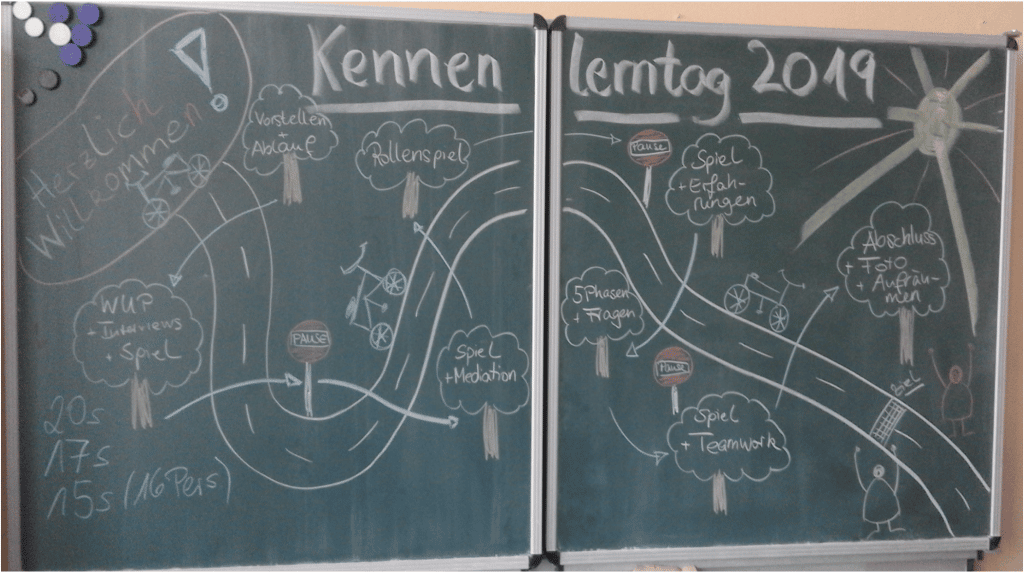 Kennenlerntag 2019
Herzlich
Willkommen
Vorstellen
+
Abläufe
WUP
+ Interviews
+ Spiel
PAUSE
Spiel
+ Mediation
Rollenspiel
Pause
Spiel
+ Erfah-
rungen
5 Phasen
+ Fragen
Pause
Spiel
+ Teamwork
Abschluss
+ Foto
+ Aufräu-
men
Ziel
20s
17s
15s (16 Pers)